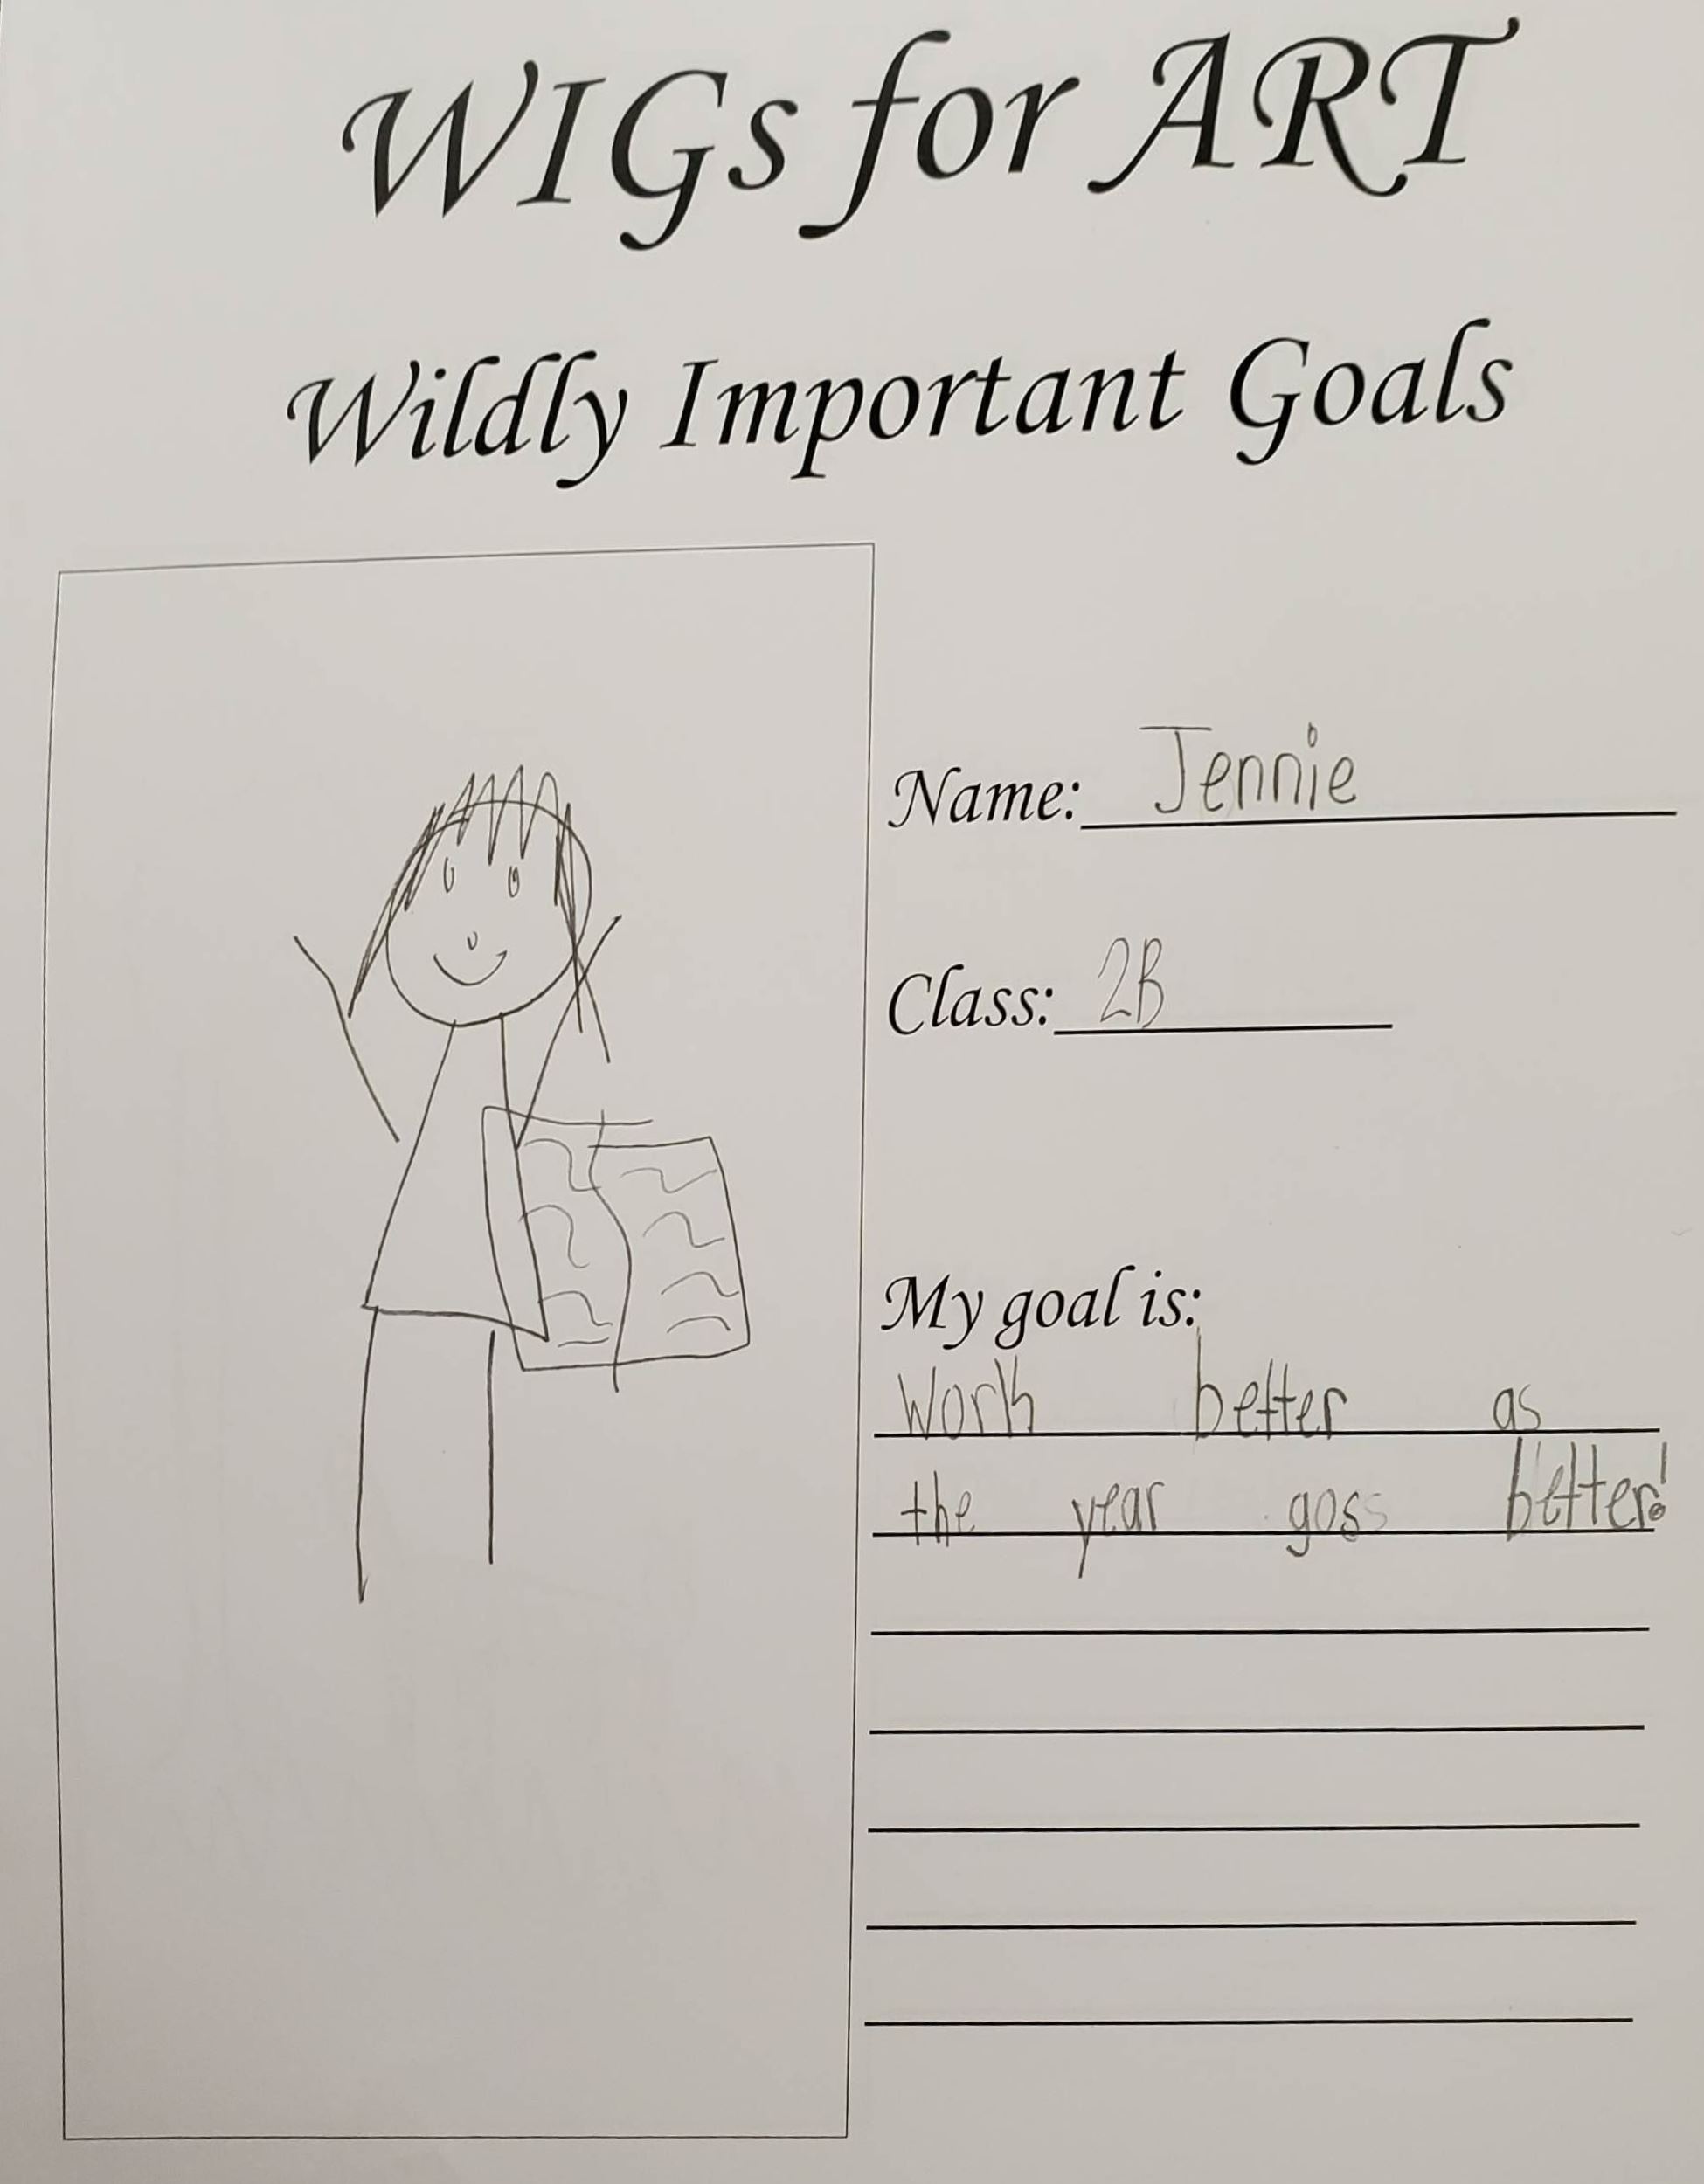 WIGs for ART
Wildly Important Goals
Name: Jennie
Class: 2B
My goal is:
Work better as
the year goss better!